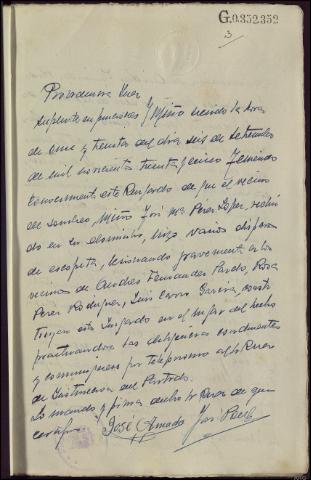 G.0.352.352
3
Providencia Juez
suplente en funciones / Miño siendo la hora
de once y treinta del dia seis de Setiembre
de mil novecientos treinta y cinco, teniendo
conocimiento este Juzgado de que el vecino
de Miño, José Mª Perez Lopez,
do en su domicilio, hizo varios disparos
de escopeta, lesionando gravemente a los
vecinos de Andres Fernandez Pardo, Rosa
Perez Rodriguez, Luis Garcia, consti
tuyase este Juzgado en el lugar del hecho
practicandose las diligencias conducentes
y comuniquese por telefonema al Sr Juez
de Instruccion del Partido.
Lo mando y firma dicho Sr Juez de que
certifico
José Amado José